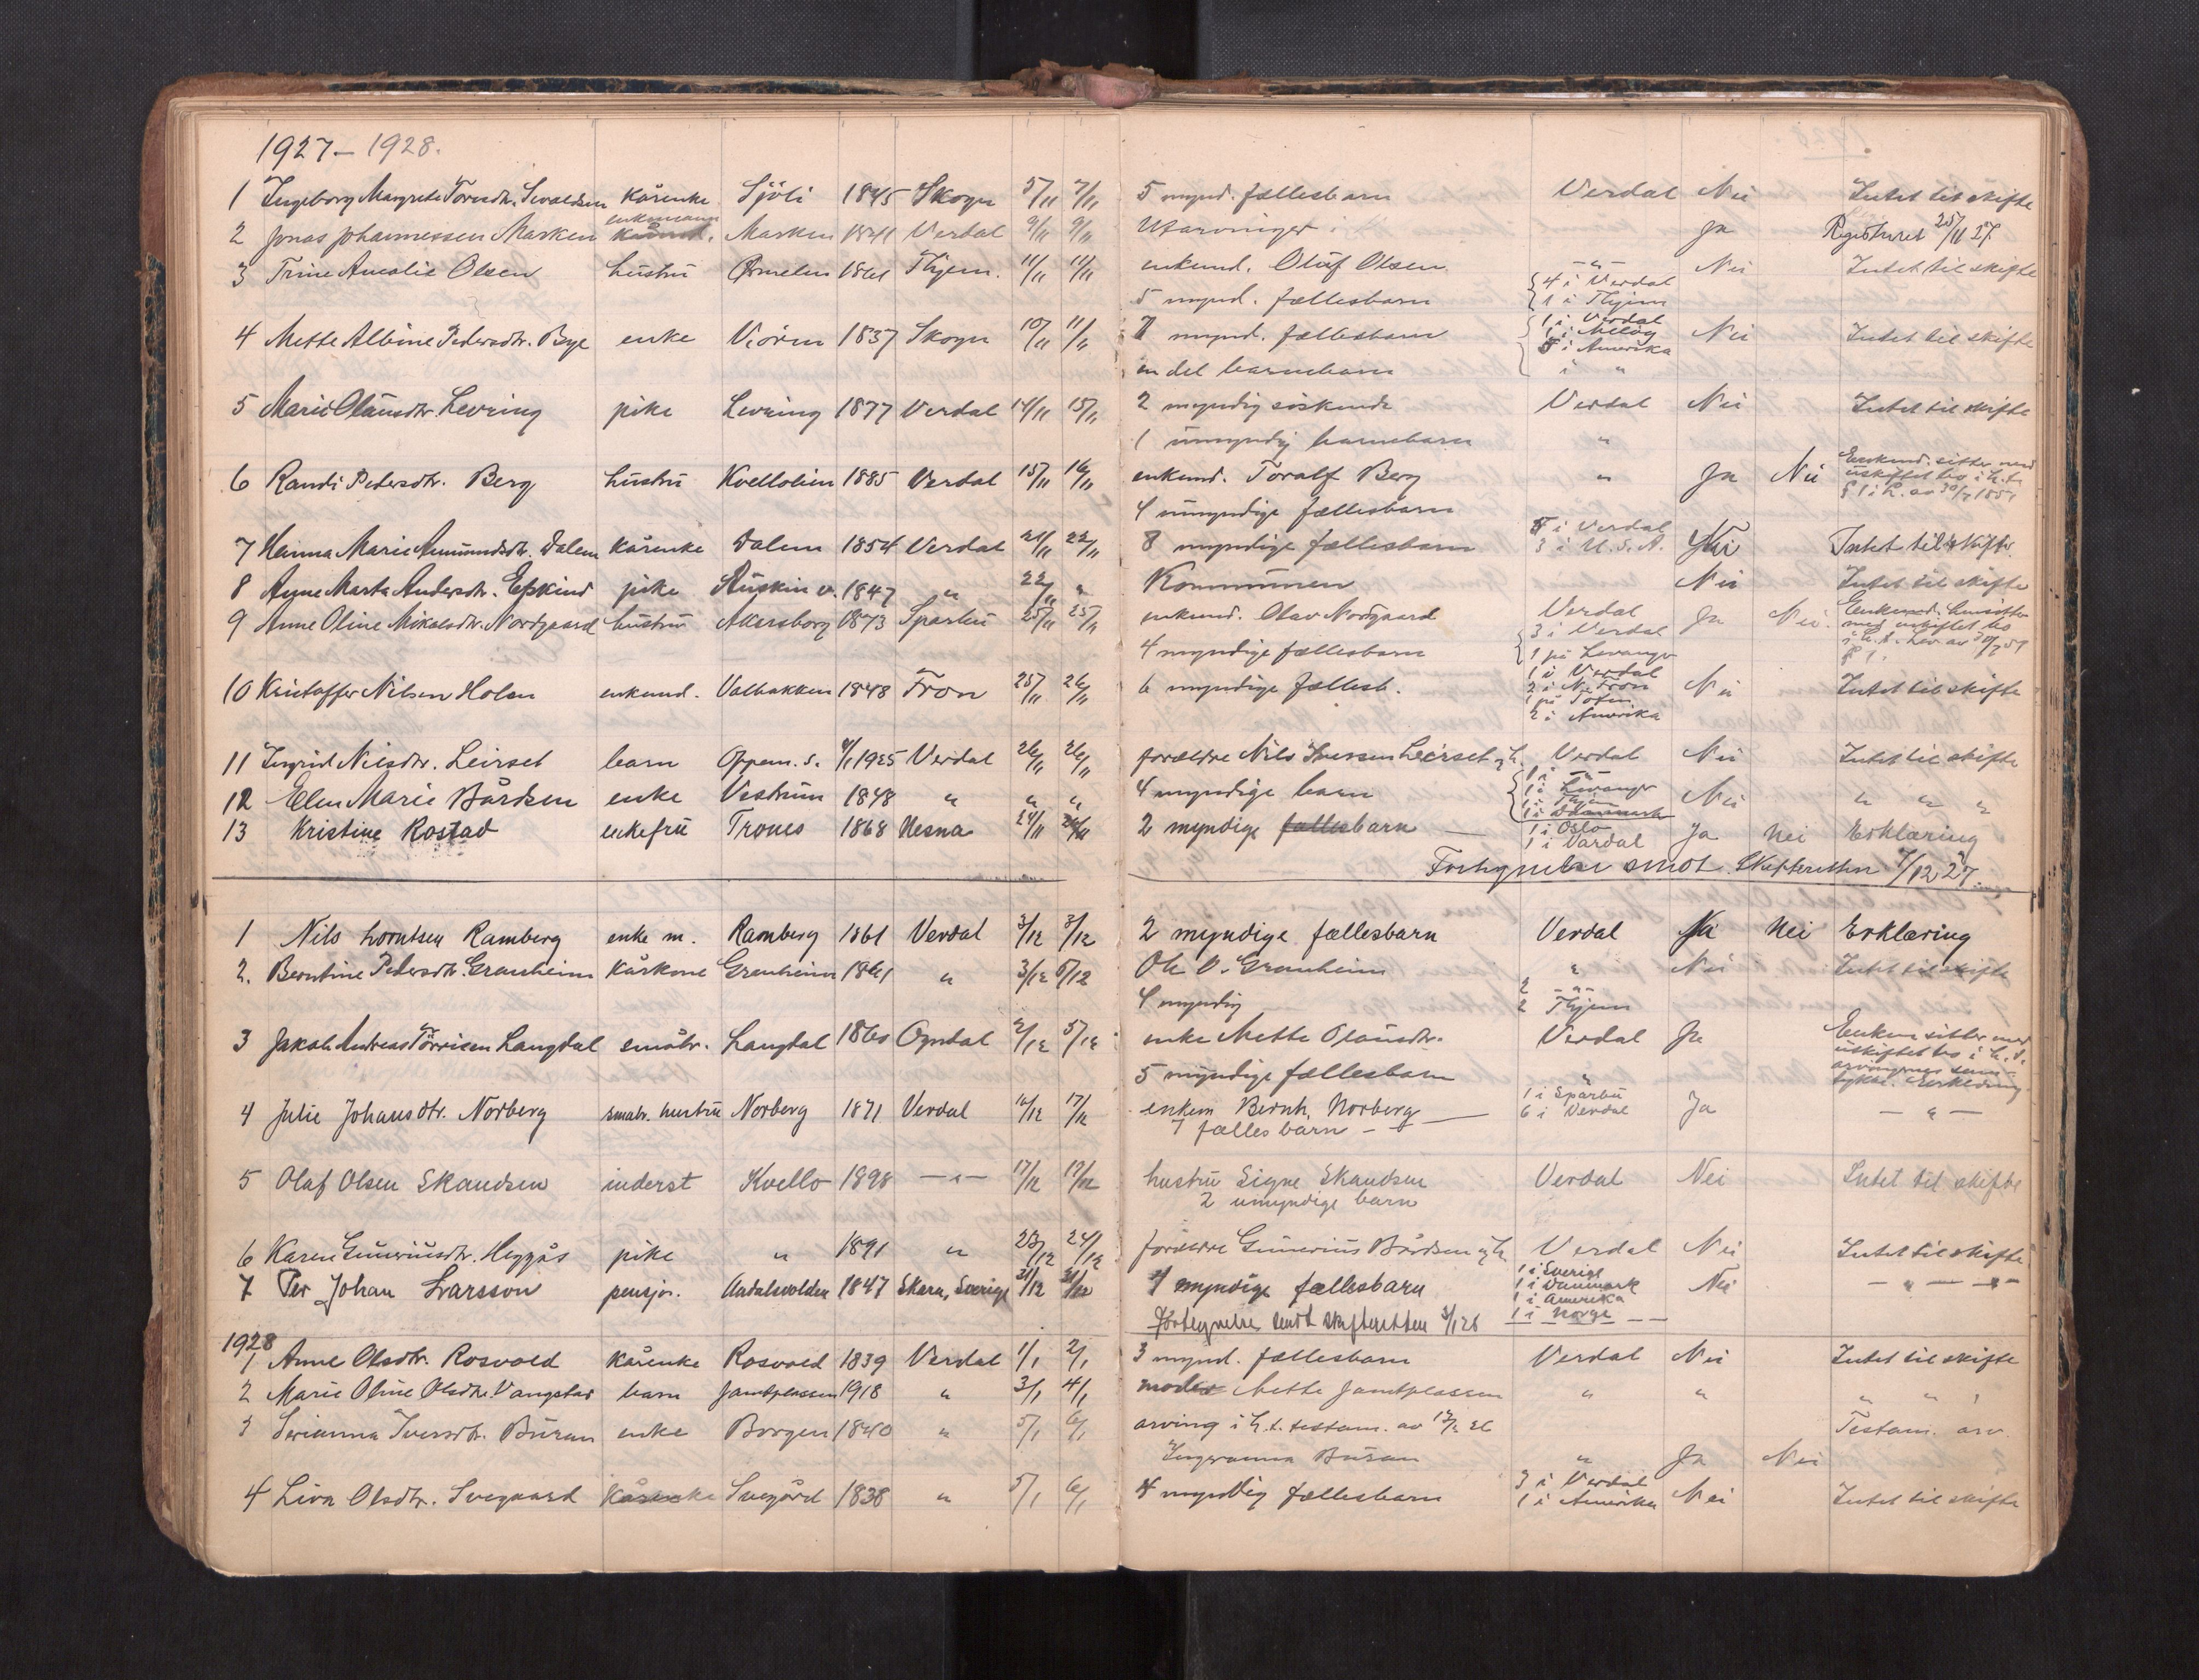 1927 – 1928.
1 Ingeborg Margrete Toresdtr. Sivaldsen kårenke Sjöli 1845 Skogn 5/11 7/11 5 mynd. fællesbarn Verdal Nei Intet til skifte
enkemann
2 Jonas Johannessen Marken Marken 1841 Verdal 9/11 9/11 Utarvinger Ja Registreret 25/11 27.
3 Trine Amalie Olsen hustru Ørmelen 1861 Thjem. 11/11 11/11 enkemd. Oluf Olsen – „ – Nei Intet til skifte
5 mynd. fællesbarn { 4 i Verdal
1 i Thjem
4 Mette Albine Pedersdtr. Bye enke Viören 1837 Skogn 10/11 11/11 7 mynd. fællesbarn { 1 i Verdal Nei Intet til skifte
1 i Meløy
5 i Amerika
en del barnebarn i „
5 Marie Olausdtr. Levring pike Levring 1877 Verdal 14/11 15/11 2 myndig söskende Verdal Nei Intet til skifte
1 umyndig barnebarn „
6 Randi Pedersdtr. Berg hustru Kvellolien 1885 Verdal 15/11 16/11 enkemd. Toralf Berg „ Ja Nei Enkemd. sitter med
uskiftet bo i h. t.
§ 1 i L. av 30/7 1851
4 umyndige fællesbarn
7 Hanna Marie Amundsdtr. Dalem kårenke Dalem 1854 Verdal 21/11 22/11 8 myndige fællesbarn 5 i Verdal Nei Intet til skifte.
3 i U.S.A.
8 Anne Marta Andersdtr. Eskind pike Auskin v. 1847 „ 22/11 „ Kommunen Nei Intet til skifte
9 Anne Oline Mikalsdtr. Nordgaard hustru Akersborg 1873 Sparbu 25/11 25/11 enkemd. Olav Nordgaard Verdal Ja Nei. Enkemd. hensitter
med uskiftet bo
i h. t. Lov av 30/7 51
§ 1.
4 myndige fællesbarn { 3 i Verdal
1 på Levanger
10 Kristoffer Nilsen Holen enkemd. Valbakken 1848 Fron 25/11 26/11 6 myndige fællesb. 1 i Verdal Nei Intet til skifte
2 i N. Fron
1 på Toten
2 i Amerika
11 Ingrid Nilsdtr. Leirset barn Oppem. s. 4/1 1925 Verdal 26/11 26/11 forældre Nils Iversen Leirset og h. Verdal Nei Intet til skifte
12 Ellen Marie Bårdsen enke Vestrum 1848 „ „ „ 4 myndige barn { 1 i – „ – Nei „ „ „
1 i Levanger
1 i Thjem
1 i Danmark
13 Kristine Rostad enkefru Trones 1868 Nesna 24/11 26/11 2 myndige fællesbarn — 1 i Oslo Ja Nei Erklæring
1 i Vardal
Fortegnelse sendt Skifteretten 7/12 27.
1 Nils Lorntsen Ramberg enke m. Ramberg 1861 Verdal 3/12 3/12 2 myndige fællesbarn Verdal Ja Nei Erklæring
2. Berntine Pedersdtr. Granheim kårkone Granheim 1861 „ 3/12 5/12 Ole O. Granheim „ Nei Intet til skifte
4 myndig 2 – „ –
2 Thjem
3 Jakob Andreas Törrisen Langdal småbr. Langdal 1860 Ogndal 2/12 5/12 enke Mette Olausdtr. Verdal Ja Enken sitter med
uskiftet bo i h. t.
arvingernes sam-
tykke. Erklæring
5 myndige fællesbarn „
4 Julie Johansdtr. Norberg småbr. hustru Norberg 1871 Verdal 16/12 17/12 enkem Bernh. Norberg — 1 i Sparbu Ja – „ –
7 fælles barn – 6 i Verdal
5 Olaf Olsen Skandsen inderst Kvello 1898 – „ – 17/12 19/12 hustru Signe Skandsen Verdal Nei Intet til skifte
2 umyndige barn
6 Karen Guneriusdtr. Heggås pike „ 1891 „ 23/12 24/12 forældre Gunerius Bårdsen og h. Verdal Nei Intet til skifte
7 Per Johan Larsson pensjon. Aadalsvolden 1847 Skara, Sverige 31/12 31/12 4 myndige fællesbarn 1 i Sverige Nei – „ – „ –
1 i Danmark
1 i Amerika
Fortegnelse sendt skifteretten 3/1 28 1 i Norge
1928
1 Anne Olsdtr. Rosvold kårenke Rosvold 1839 Verdal 1/1 2/1 3 mynd. fællesbarn Verdal Nei Intet til skifte
2 Marie Oline Olsdtr. Vangstad barn Jamtplassen 1918 „ 3/1 4/1 moder Mette Jamtplassen „ „ „ „ „
3 Serianna Iversdtr. Buran enke Borgen 1840 „ 5/1 6/1 arving i h. t. testam. av 12/2 26 Testam. arv.
Ingeranna Buran „ Ja Nei
4 Liva Olsdtr. Svegaard kårenke Svegård 1838 „ 5/1 6/1 4 myndig fællesbarn 3 i Verdal Nei Intet til skifte
1 i Amerika